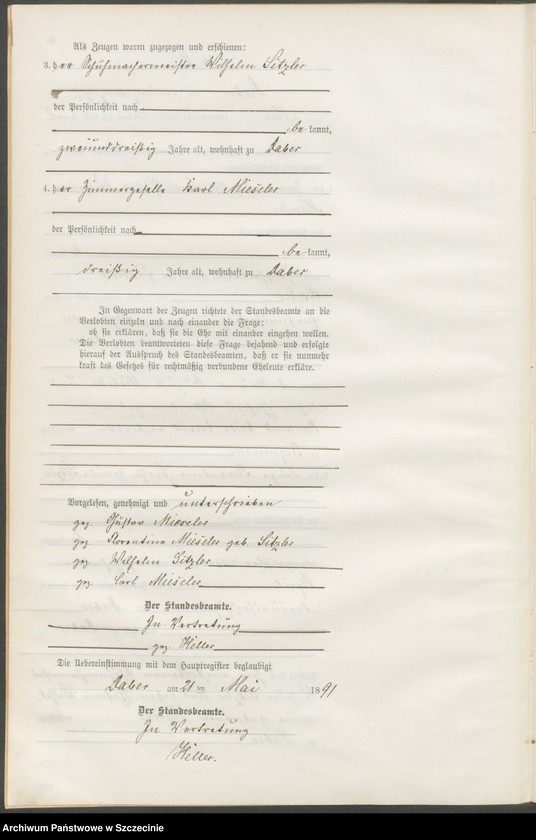 Als Zeugen waren zugezogen und erschienen:
3. der Schuhmachermeister Wilhelm Sitzler
der Persönlichkeit nach
be kannt,
zweiunddreißig Jahre alt, wohnhaft zu Daber
4. der Zimmergeselle Karl Mieseler
der Persönlichkeit nach
be kannt,
dreißig Jahre alt, wohnhaft zu Daber
In Gegenwart der Zeugen richtete der Standesbeamte an die
Verlobten einzeln und nach einander die Frage:
ob sie erklären, daß sie die Ehe mit einander eingehen wollen.
Die Verlobten beantworteten diese Frage bejahend und erfolgte
hierauf der Ausspruch des Standesbeamten, daß er sie nunmehr
kraft des Gesetzes für rechtmäßig verbundene Eheleute erkläre.
Vorgelesen, genehmigt und unterschrieben
gez. Gustav Mieseler
gez. Florentine Mieseler geb. Sitzler
gez. Wilhelm Sitzler
gez. Carl Mieseler
Der Standesbeamte.
In Vertretung
gez. Heller
Die Uebereinstimmung mit dem Hauptregister beglaubigt
Daber am 21 ten Mai 1891
Der Standesbeamte.
In Vertretung
Heller.
Archiwum Państwowe w Szczecinie